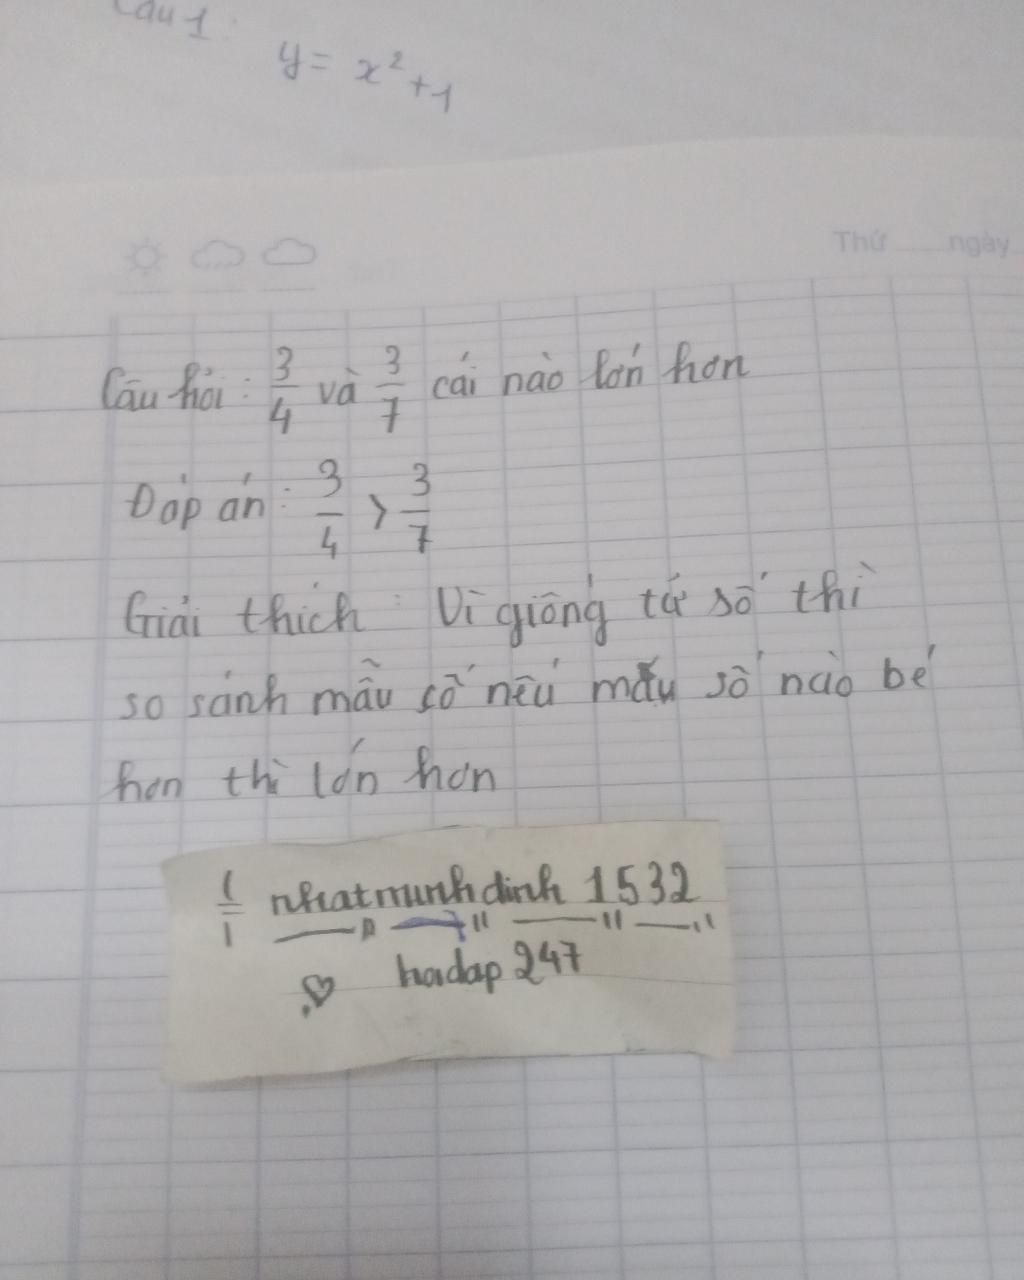 Câu 1:
y = x² + 1
Thứ ngày
Câu hỏi: 3/4 và 3/7 cái nào lớn hơn
Đáp án: 3/4 > 3/7
Giải thích: Vì giống tử số thì
so sánh mẫu số nếu mẫu số nào bé
hơn thì lớn hơn
1/1 nhatminhdinh 1532
hoidap 247